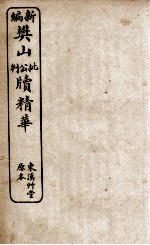 新編樊山批公判牘精華
東溪艸堂
原本